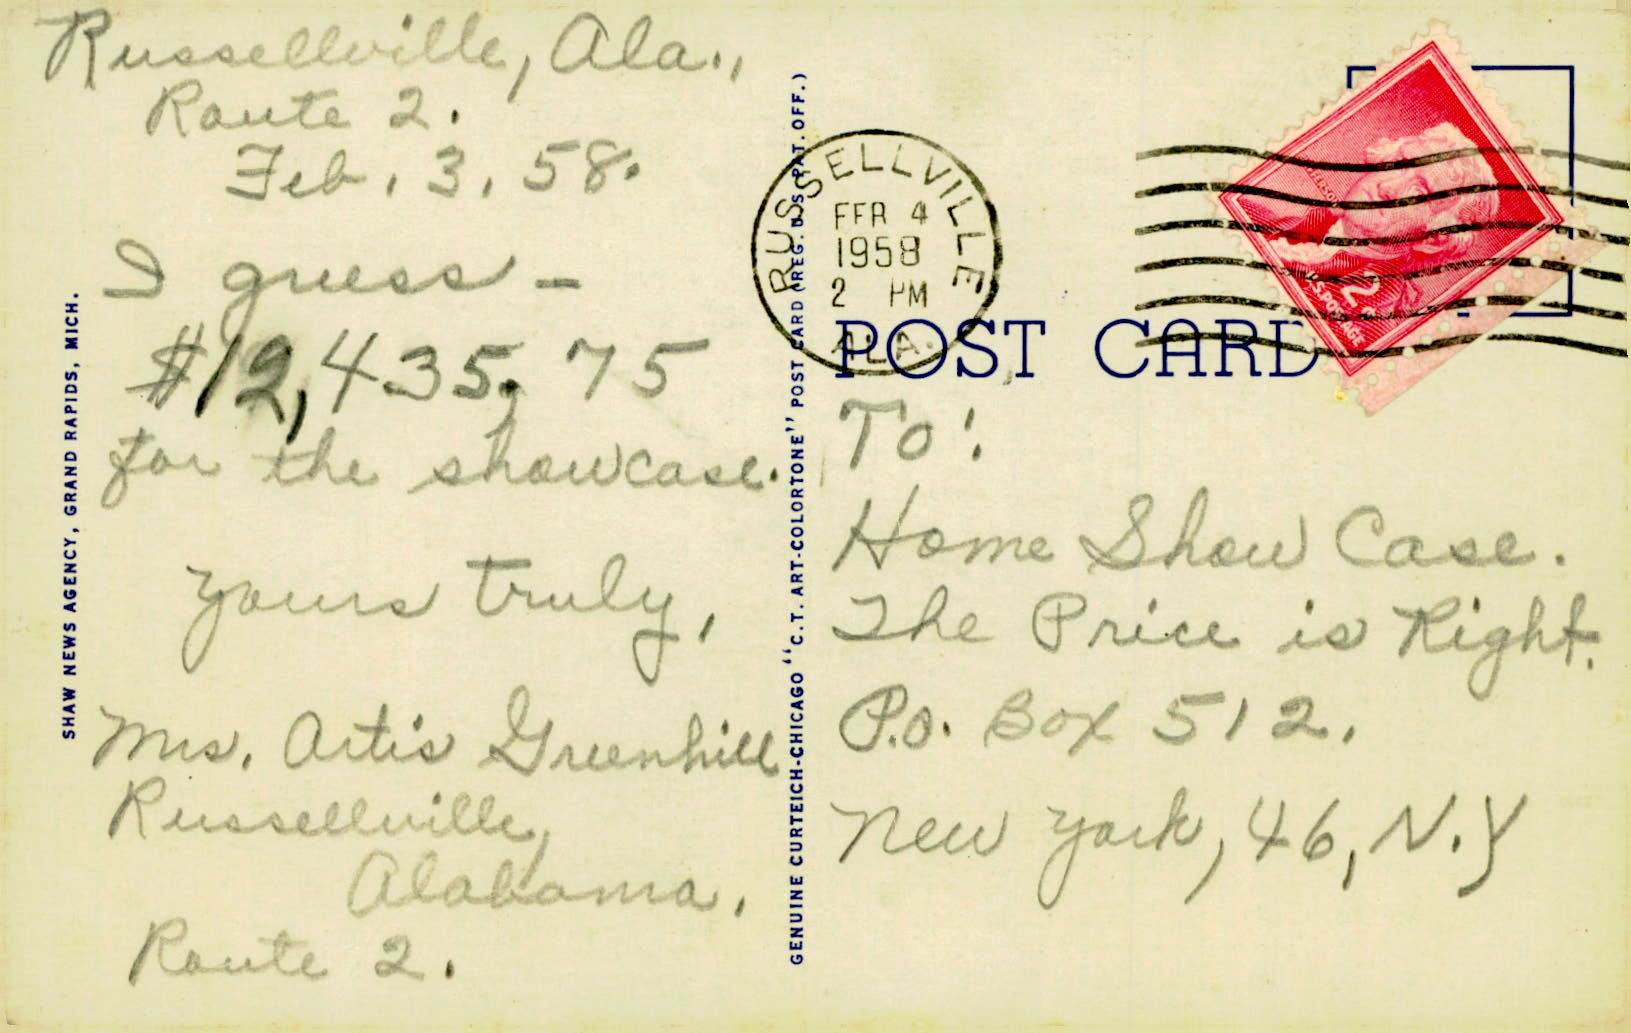 Russellville, Ala.,
Route 2.
Feb. 3, 58.
I guess -
$12,435.75
for the showcase.
Yours truly,
Mrs. Artis Greenhill
Russellville,
Alabama.
Route 2.
SHAW NEWS AGENCY, GRAND RAPIDS, MICH.
GENUINE CURTEICH-CHICAGO "C.T. ART-COLORTONE" POST CARD (REG. U.S. PAT. OFF.)
RUSSELLVILLE
FEB 4
1958
2 PM
ALA.
2
U.S. POSTAGE
JEFFERSON
POST CARD
To:
Home Show Case.
The Price is Right.
P.O. Box 512.
New York, 46, N.Y